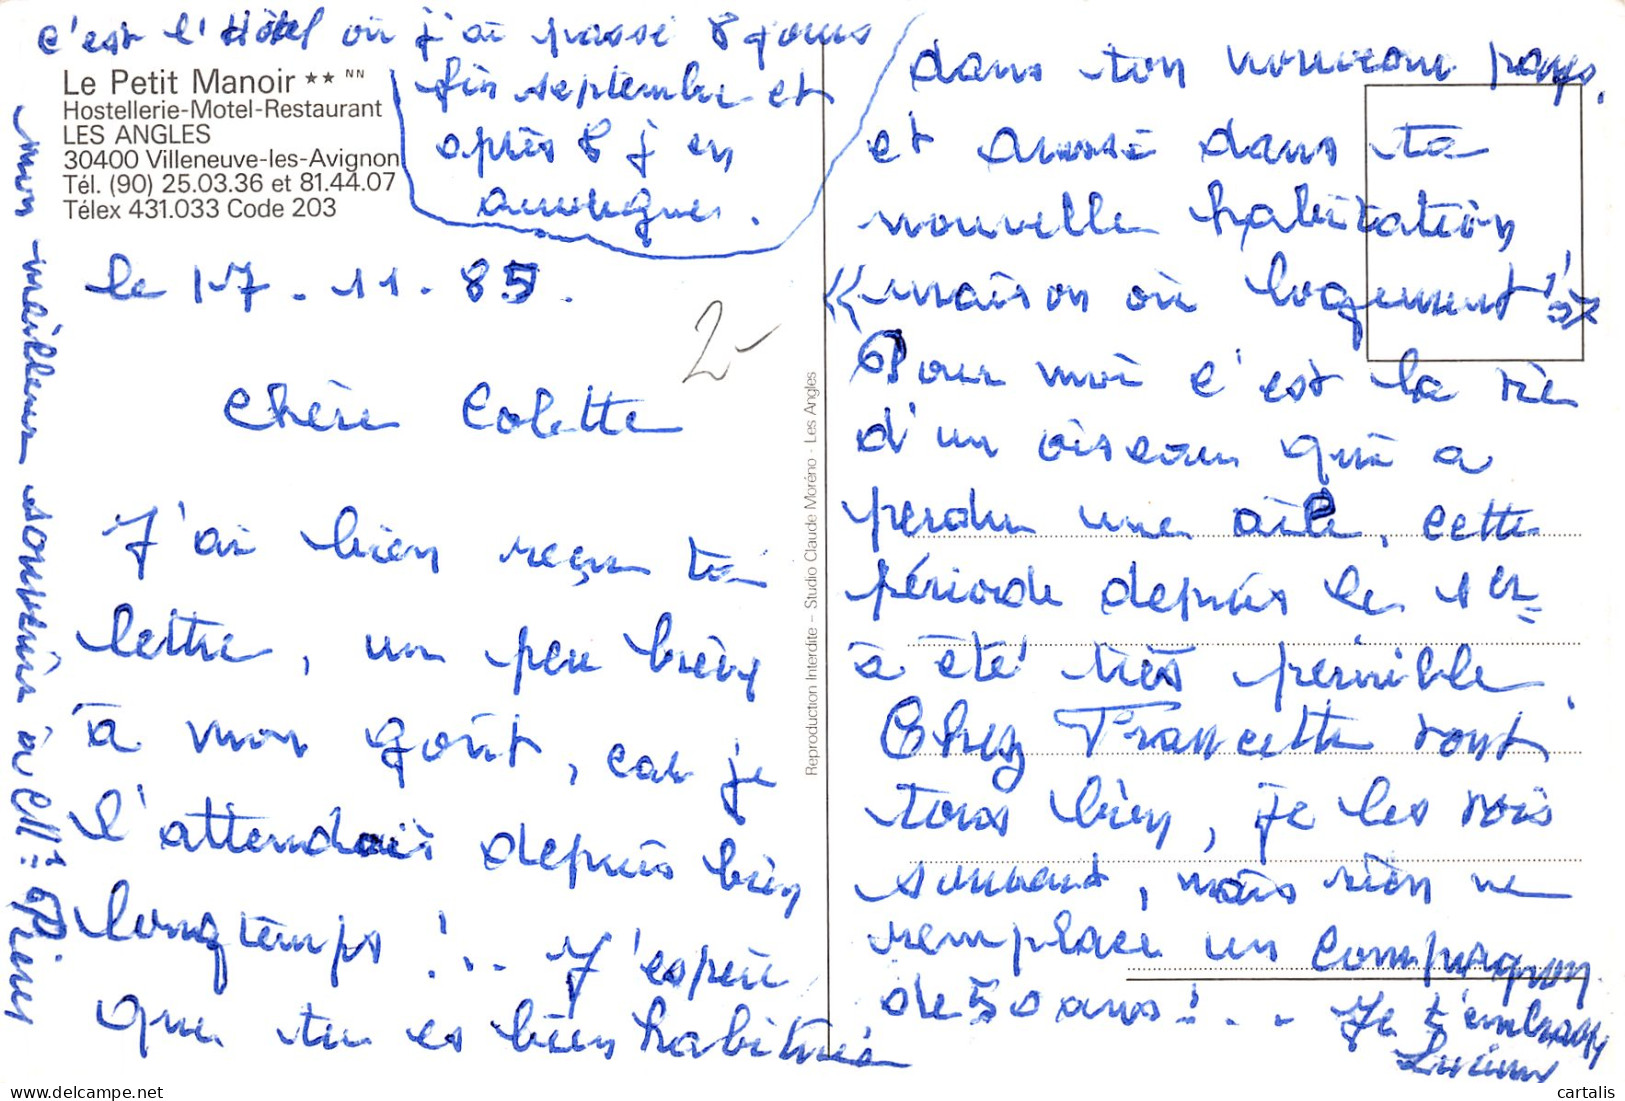 c'est l'Hôtel où j'ai passé 8 jours
fin septembre et
après 8 j en
Le Petit Manoir ★★ NN
Hostellerie-Motel-Restaurant
LES ANGLES
30400 Villeneuve-les-Avignon
Tél. (90) 25.03.36 et 81.44.07
Télex 431.033 Code 203
le 17.11.85.
2
Chère Colette
J'ai bien reçu ta
lettre, un peu brève
à mon goût, car je
l'attendais depuis bien
longtemps !.. J'espère
que tu es bien habituée
mon meilleur souvenir à
Reproduction Interdite – Studio Claude Moréno - Les Angles
dans ton nouveau pays.
et aussi dans ta
nouvelle habitation
"maison où logement"
Pour moi c'est la vie
d'un oiseau qui a
perdu une aile, cette
période depuis le 1er
a été très pénible.
Chez Francette sont
tous bien, je les vois
souvent, mais rien ne
remplace un compagnon
de 50 ans !.. Je t'embrasse
cartalis